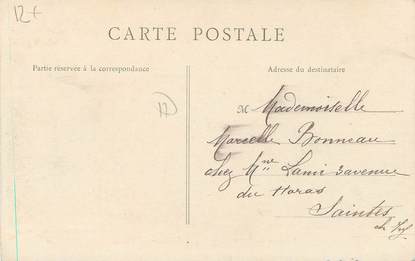 12+
CARTE POSTALE
Partie réservée à la correspondance
Adresse du destinataire
12
M Mademoiselle
Marcelle Bonneau
chez Mme Lami 3 avenue
du Haras
Saintes
ch Inf